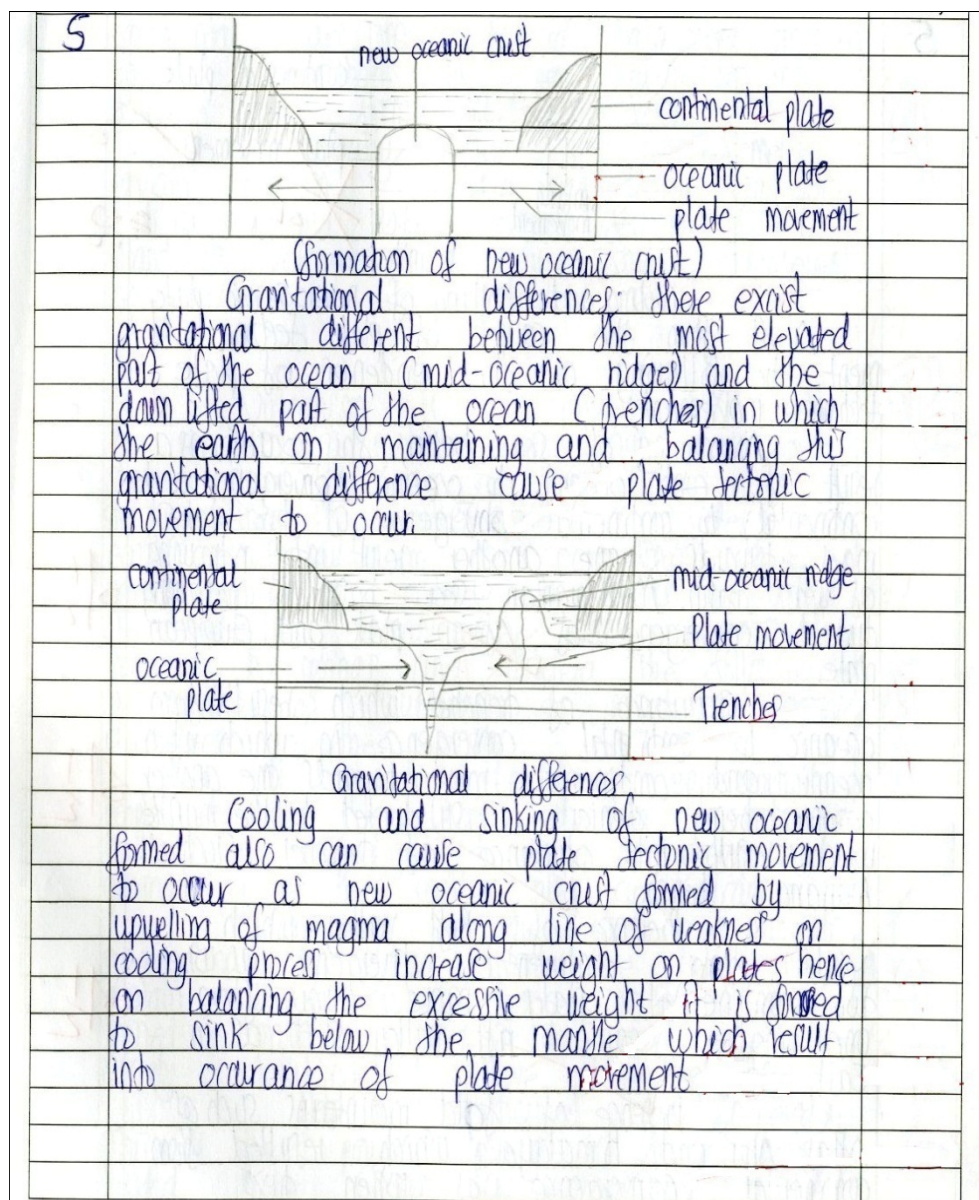 5
new oceanic crust
continental plate
oceanic plate
plate movement
(formation of new oceanic crust)
Gravitational differences, there excist
gravitational different between the most elevated
part of the ocean (mid-oceanic ridges) and the
down lifted part of the ocean (trenches) in which
the earth on maintaining and balancing this
gravitational difference cause plate tectonic
movement to occur.
continental
plate
mid-oceanic ridge
Plate movement
oceanic
plate
Trenches
Gravitational differences
Cooling and sinking of new oceanic
formed also can cause plate tectonic movement
to occur as new oceanic crust formed by
upwelling of magma along line of weakness on
cooling process increase weight on plates hence
on balancing the excessive weight it is forced
to sink below the mantle which result
into occurance of plate movement